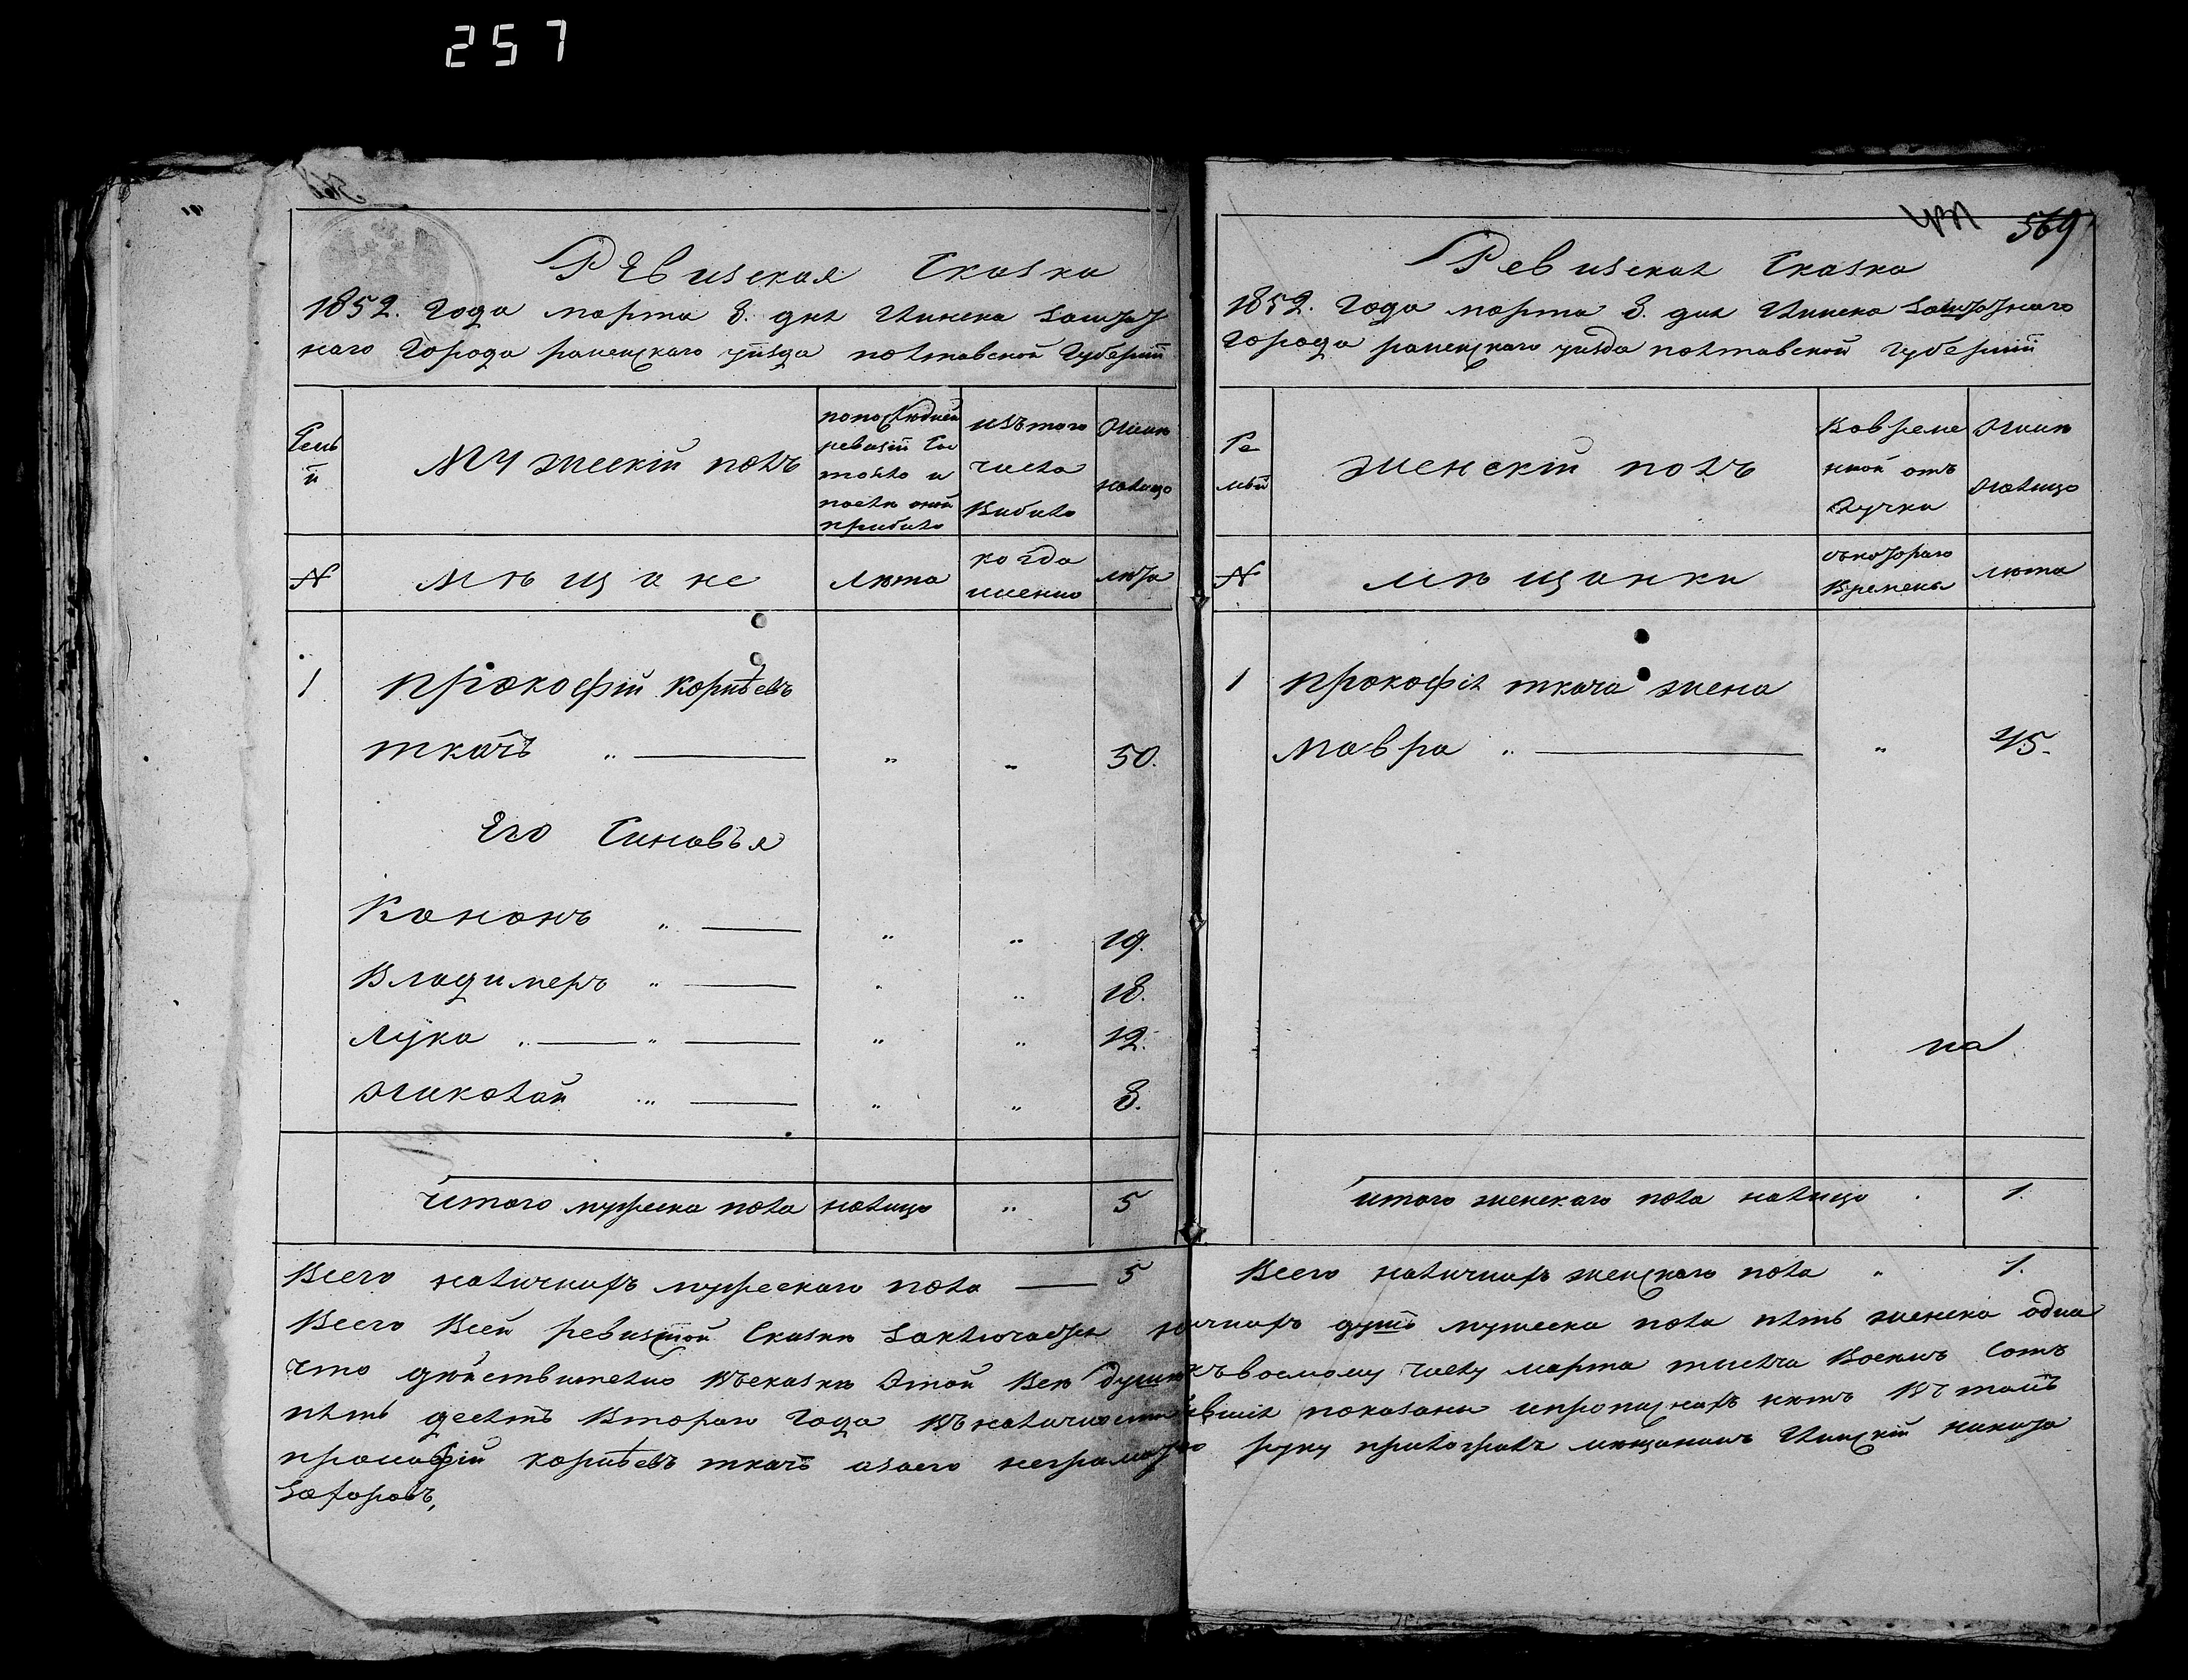 257
569
Ревизская Сказка
1852. Года марта 8. дня Глинска Заштат
наго Города роменскаго уѣзда полтавской Губерніи
Семьи
Мужескій полъ
попослѣдней ревизіи Состояло и послѣ оной прибило
изътого числа Выбило
Нинѣ налицо
N
мѣщане
лѣта
когда именно
лѣта
1
прокофій Корнѣевъ
ткачъ " — " " 50.
Его Синовья
Кононъ " — " " 19.
Владимеръ " — " " 18.
Лука " — " — " " 12.
Николай " — " " 8.
Итого мужеска пола налицо " 5
Всего наличнихъ мужескаго пола — 5
Ревизская Сказка
1852. Года марта 8. дня Глинска Заштатнаго
Города роменскаго уѣзда полтавской Губерніи
Семьи
женскій полъ
Вовременной отлучки
Нинѣ налицо
N
мѣщанки
съкотораго Времени
лѣта
1
прокофія ткача жена
мавра " — " 45.
итого женскаго пола налицо 1.
Всего наличнихъ женскаго пола " 1.
Всего Всей ревизской Сказкѣ Заключается душъ мужеска пола пять женска одна
что дѣйствително Въсказкѣ Этой Всѣ души къвосмому числу марта тисяча Восемъ Сотъ
пять десятъ Втораго Года Въналичности показани ипрописнихъ нѣтъ Вътомъ
прокофій корнѣевъ ткачъ азаего неграмотнаго руку приложилъ мѣщанинъ Глинскій